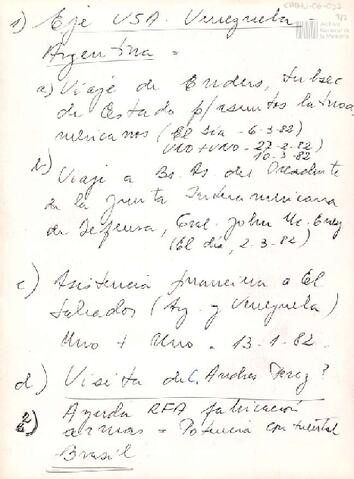 CADHU-06-022
1/2
Archivo Nacional de la Memoria
1) Eje USA. Venezuela
Argentina =
a) Viaje de Enders, Subsec
de Estado p/asuntos latinoa
mericanos (El Día - 6-3-82)
UNO+UNO - 27-2-82
10-3-82
b) Viaje a Bs. As. del Presidente
de la Junta Interamericana
de Defensa, Gral. John Mc. Enery
(El día, 2-3-82)
c) Asistencia financiera a El
Salvador (Ag. y Venezuela)
Uno + Uno - 13-1-82.
d) Visita de C. Andres Perez?
2) Ayuda RFA fabricación
armas = Potencia continental
Brasil